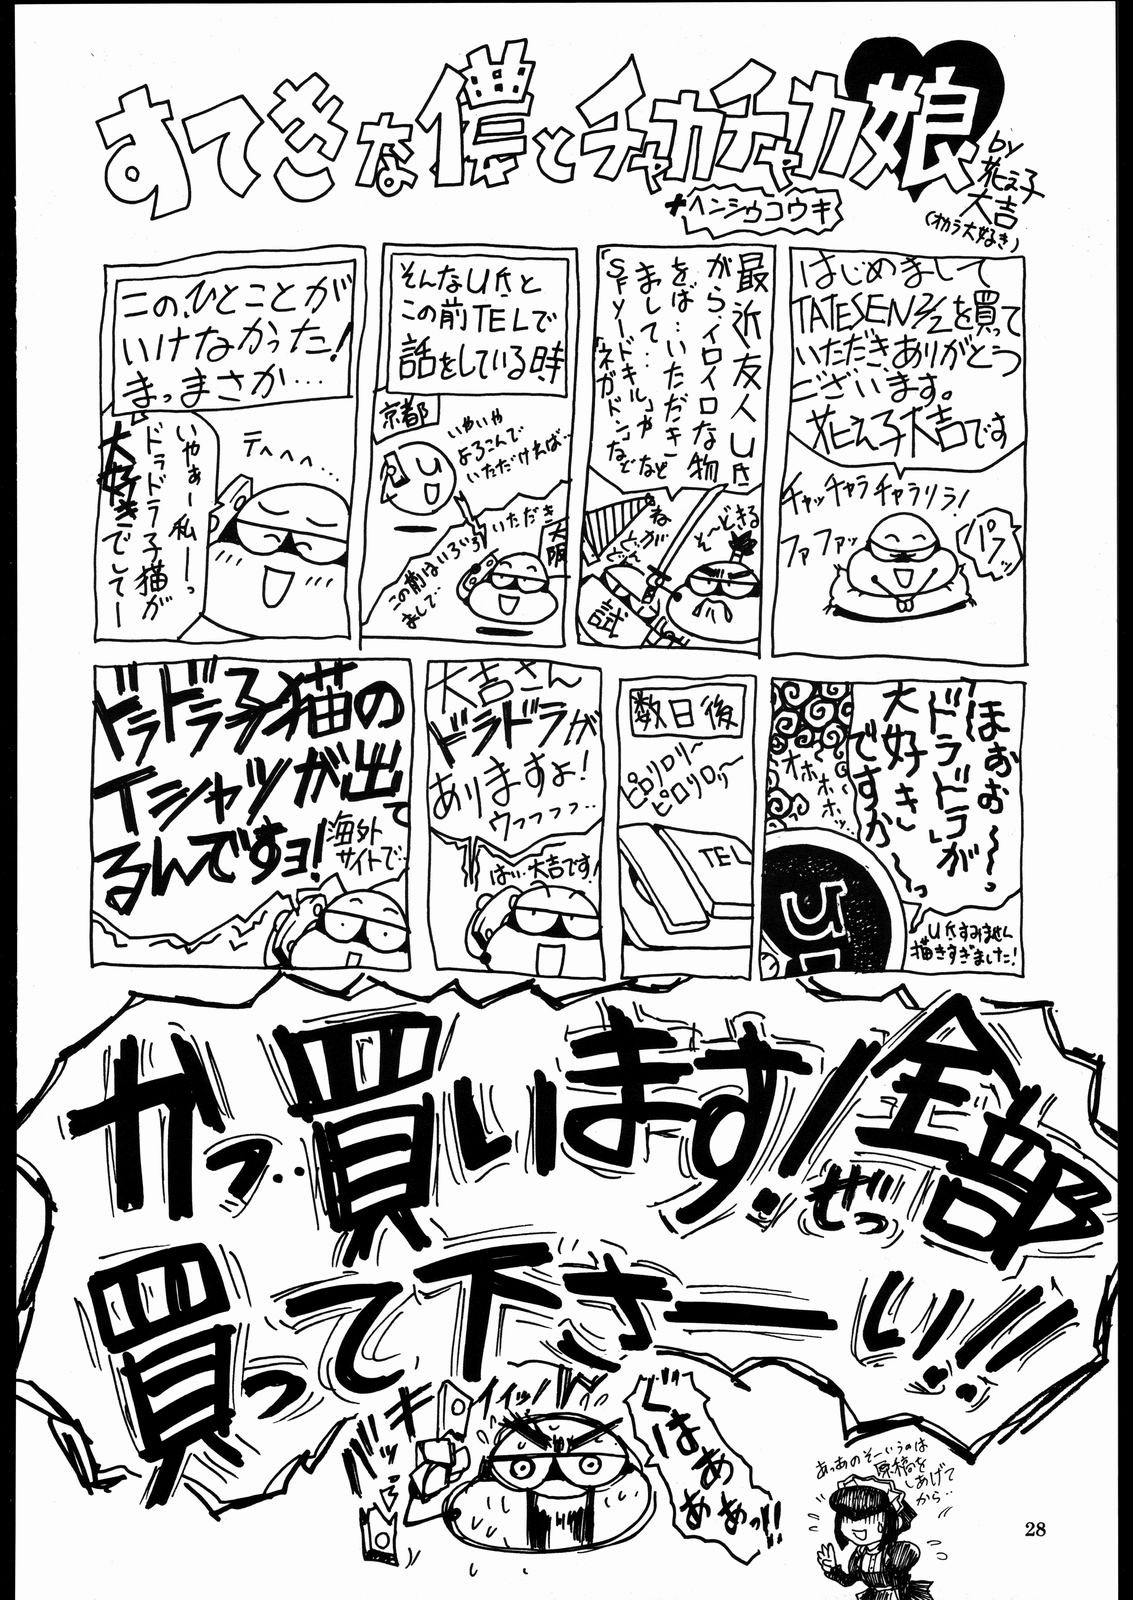 すてきな僕とチャカチャカ娘
+ヘンシュウコウキ
by
花え子
大吉
(オカラ大好き)
はじめまして
TATESEN2/2を買って
いただき、ありがとう
ございます。
花え子大吉です
チャッチャラチャラリラ!
ファファッ
パフッ
最近友人U氏
からイロイロな物
をば…いただき
まして…などと
「SFソードキル」や
「ネガドン」など
そ〜どきる
ねがどん
試
そんなU氏と
この前TELで
話をしている時、
京都
いやいや
よろこんで
いただければ…
U
大阪
この前はいろいろいただき
まして…
この、ひとことが
いけなかった!
まっまさか…
テへへへ…
いやぁー私ーっ
ドラドラ子猫が
大好きでしてー
ほぉぉ〜〜っ
「ドラドラ」が
大好き
ですか〜っ
オホホホホッ…
U氏すみません
描きすぎました!
数日後
ピロリロリ〜
ピロリロリィ〜
TEL
大吉さん
ドラドラが
ありますよ!
ウっっっっ‥
はい…大吉です!
ドラドラ子猫の
Tシャツが出て
るんですヨ!
海外
サイトで…
かっ…買います!全部
ぜっ
買って下さーい!!
バキッ
イイッ!
ぐはぁぁぁぁっ!!
あっあのそーいうのは
原稿を
しあげて
から…
28